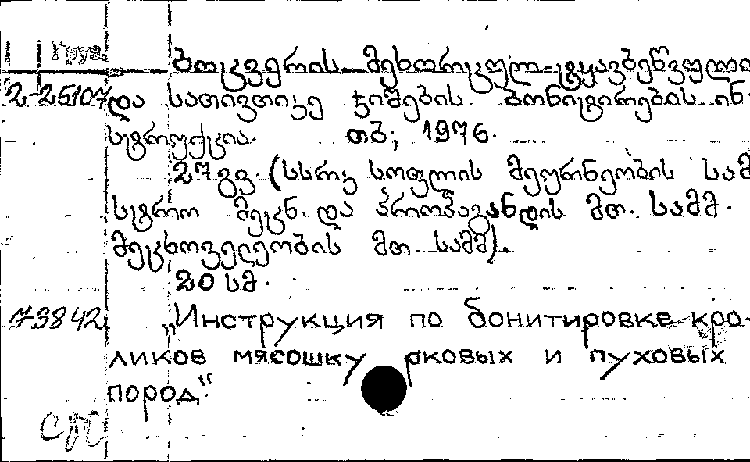 Груз.
ბოცვერის მეხორცულ-ტყავბეწვეულის
2-25107 და სათივთიკე ჯიშების ბონიტირების ინ-
სტრუქცია. თბ; 1976.
27 გვ. (სსრკ სოფლის მეურნეობის სამი-
სტრო მეცნ. და პროპაგანდის მთ. სამმ.
მეცხოველეობის მთ სამმ).
20 სმ.
73842 „Инструкция по бонитировке кро-
ликов мясошку рковых и пуховых
пород."